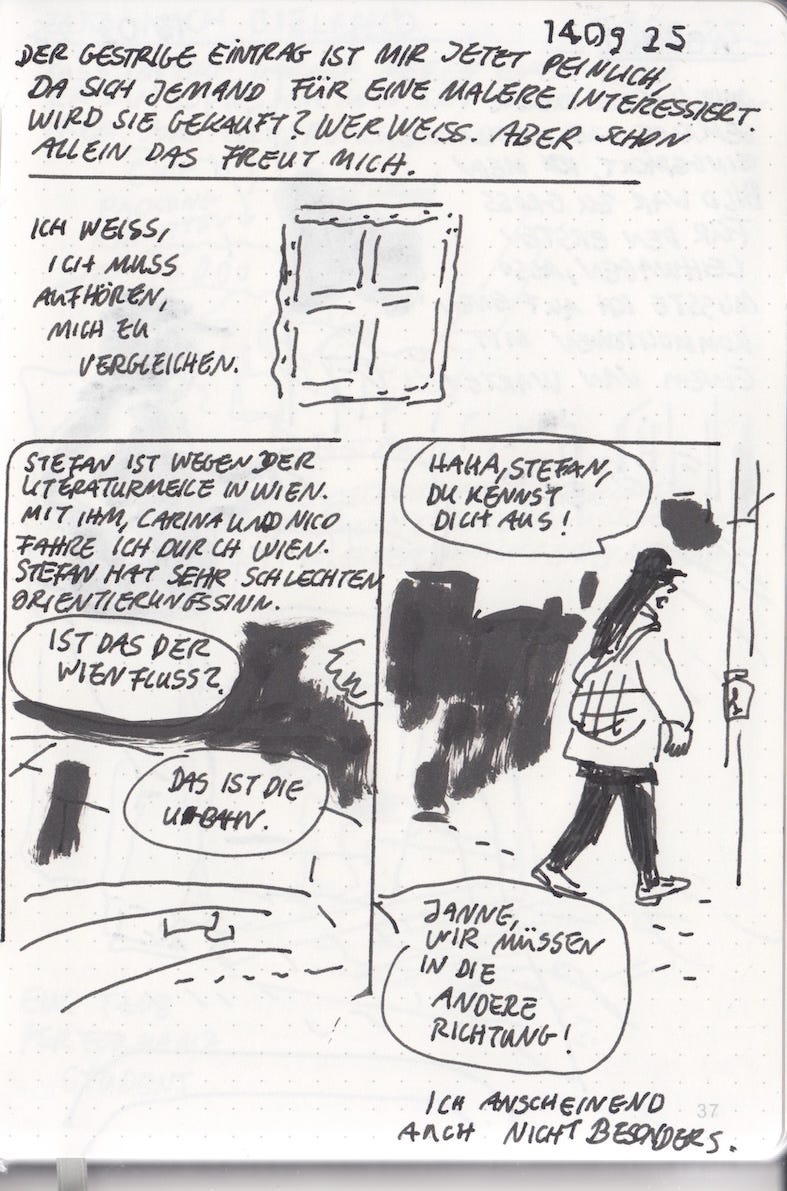 14.09 25
DER GESTRIGE EINTRAG IST MIR JETZT PEINLICH,
DA SICH JEMAND FÜR EINE MALERE INTERESSIERT.
WIRD SIE GEKAUFT? WER WEISS. ABER SCHON
ALLEIN DAS FREUT MICH.
ICH WEISS,
ICH MUSS
AUFHÖREN,
MICH ZU
VERGLEICHEN.
STEFAN IST WEGEN DER
LITERATURMEILE IN WIEN.
MIT IHM, CARINA UND NICO
FAHRE ICH DURCH WIEN.
STEFAN HAT SEHR SCHLECHTEN
ORIENTIERUNGSSINN.
IST DAS DER
WIENFLUSS?
DAS IST DIE
U-BAHN.
HAHA, STEFAN,
DU KENNST
DICH AUS!
JANNE,
WIR MÜSSEN
IN DIE
ANDERE
RICHTUNG!
ICH ANSCHEINEND
AUCH NICHT BESONDERS.
37